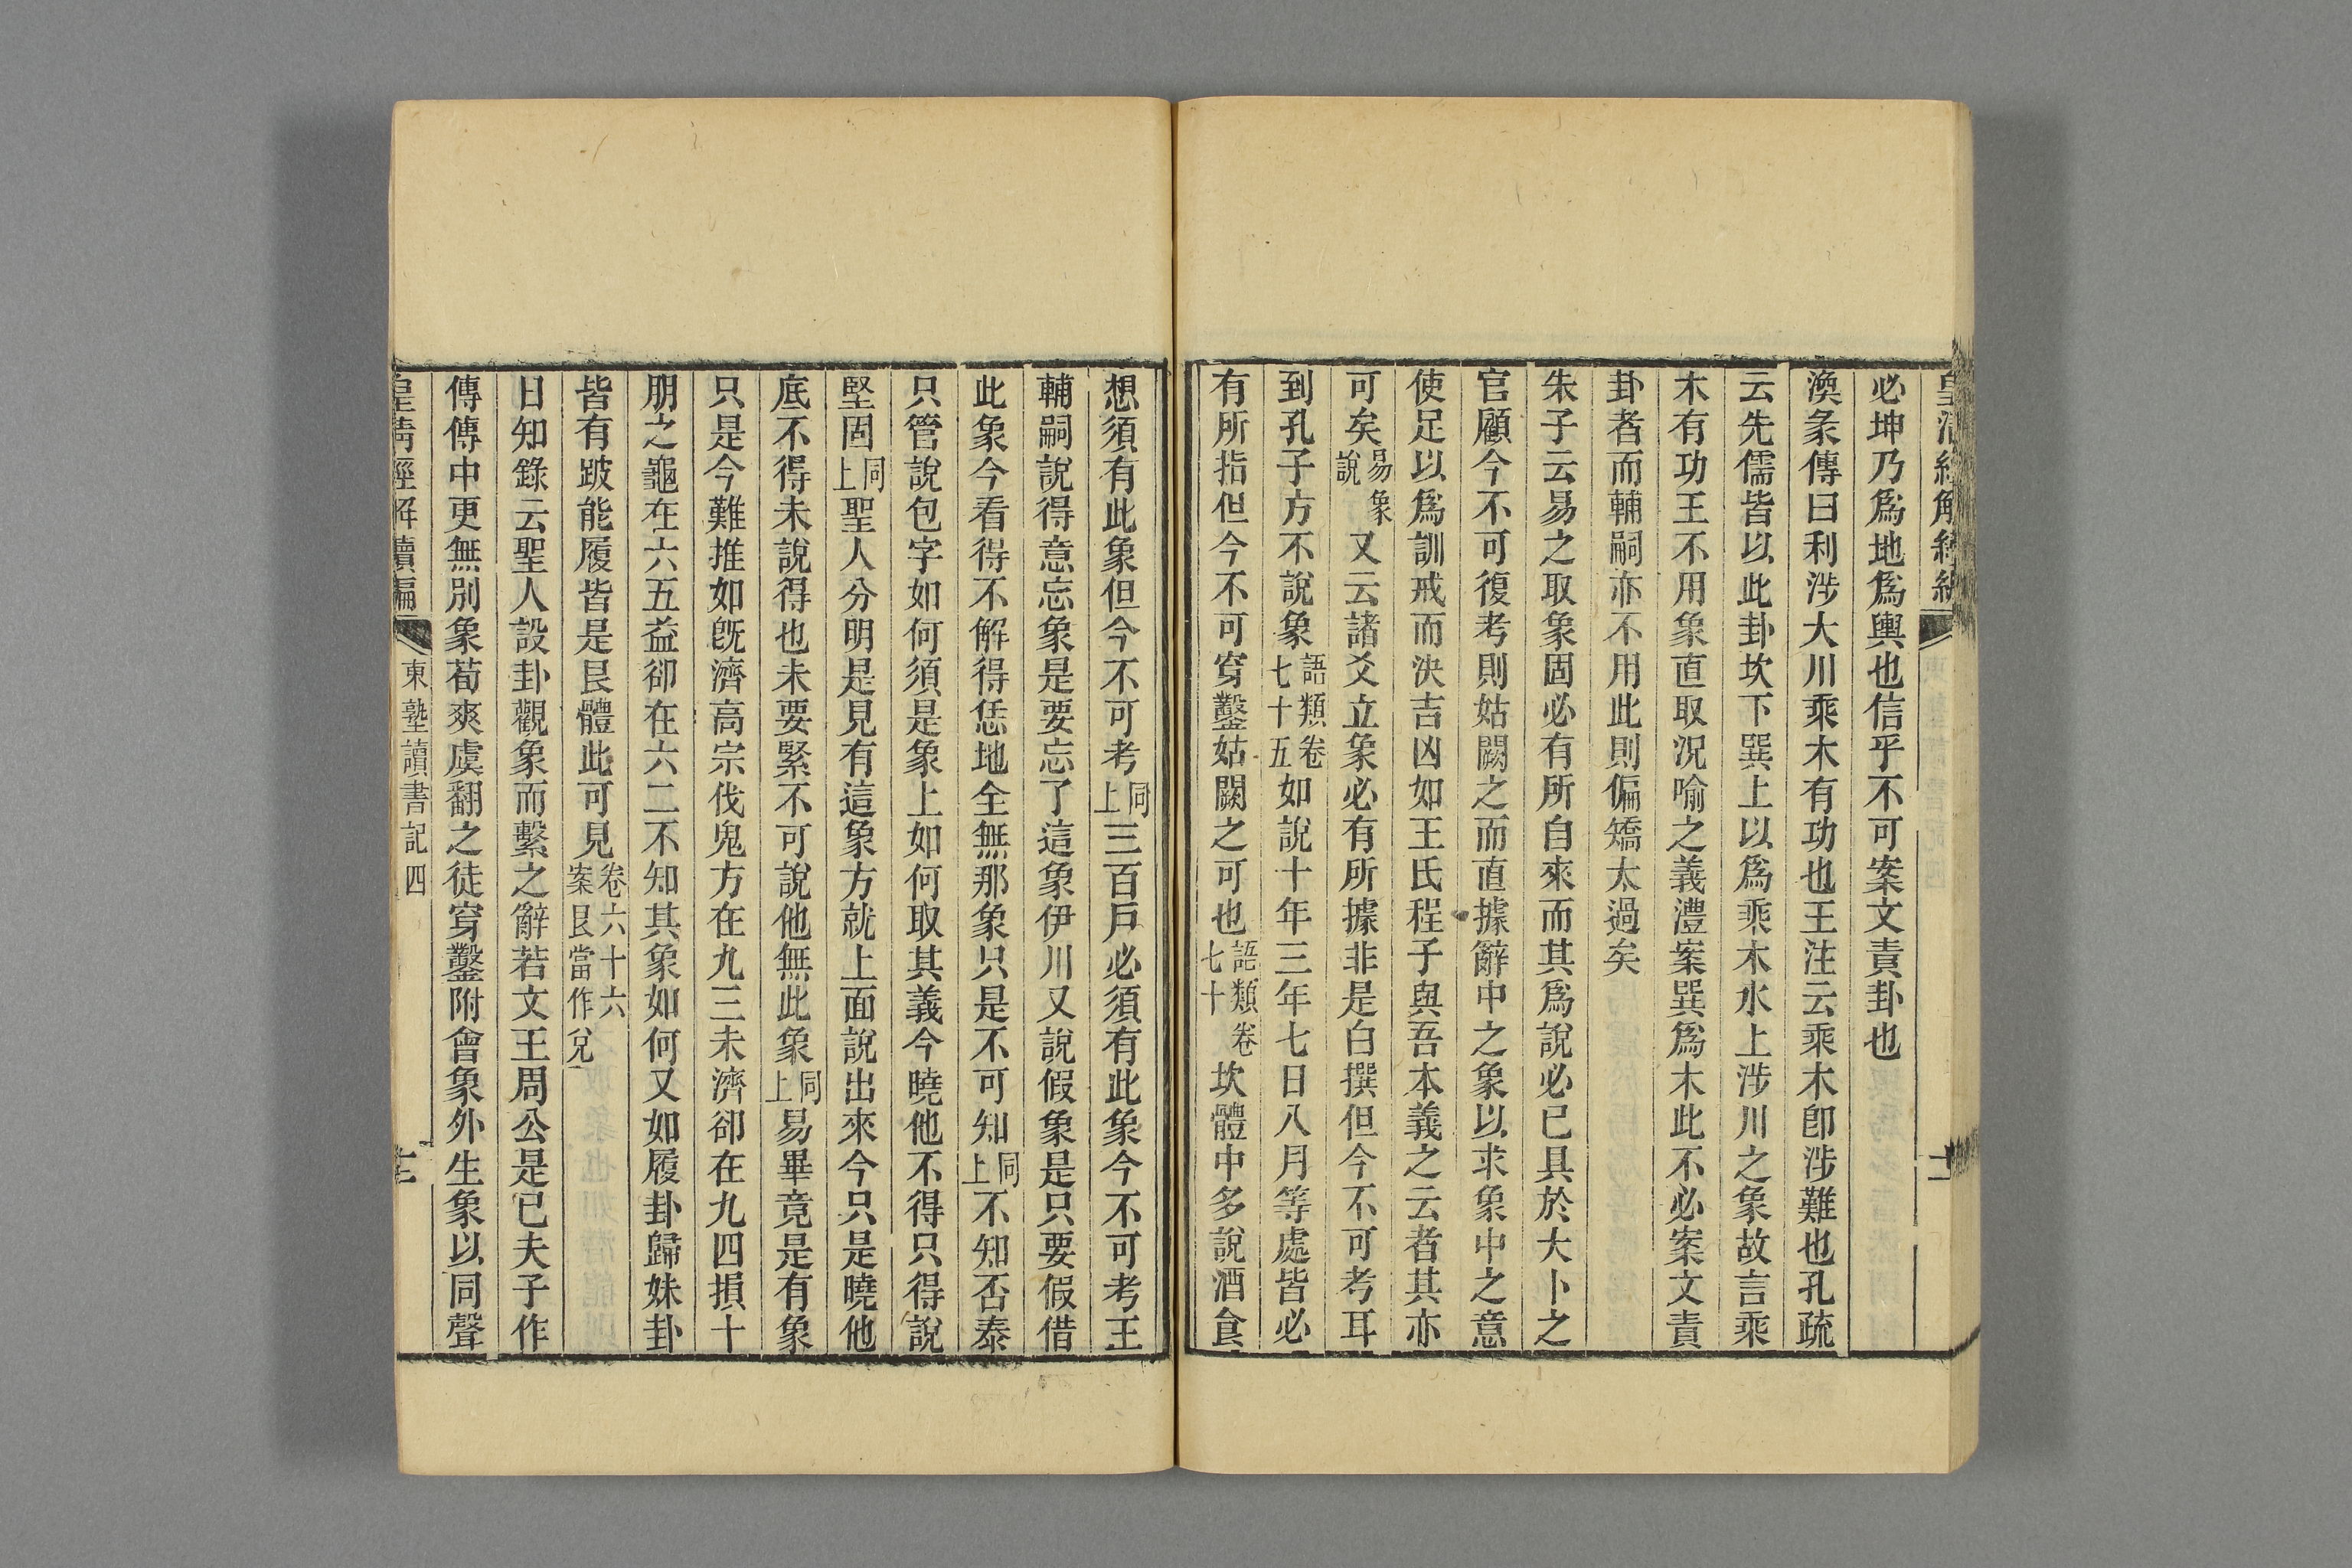 必坤乃爲地爲輿也信乎不可案文責卦也
渙彖傳曰利涉大川乘木有功也王注云乘木卽涉難也孔疏
云先儒皆以此卦坎下巽上以爲乘木水上涉川之象故言乘
木有功王不用象直取況喻之義澧案巽爲木此不必案文責
卦者而輔嗣亦不用此則偏矯太過矣
朱子云易之取象固必有所自來而其爲說必已具於大卜之
官顧今不可復考則姑闕之而直據辭中之象以求象中之意
使足以爲訓戒而決吉凶如王氏程子與吾本義之云者其亦
可矣易象說又云諸爻立象必有所據非是白撰但今不可考耳
到孔子方不說象語類卷七十五如說十年三年七日八月等處皆必
有所指但今不可穿鑿姑闕之可也語類卷七十坎體中多說酒食
想須有此象但今不可考同上三百戶必須有此象今不可考王
輔嗣說得意忘象是要忘了這象伊川又說假象是只要假借
此象今看得不解得恁地全無那象只是不可知同上不知否泰
只管說包字如何須是象上如何取其義今曉他不得只得說
堅固同上聖人分明是見有這象方就上面說出來今只是曉他
底不得未說得也未要緊不可說他無此象同上易畢竟是有象
只是今難推如旣濟高宗伐鬼方在九三未濟卻在九四損十
朋之龜在六五益卻在六二不知其象如何又如履卦歸妹卦
皆有跛能履皆是艮體此可見卷六十六案艮當作兌
日知錄云聖人設卦觀象而繫之辭若文王周公是已夫子作
傳傳中更無別象荀爽虞翻之徒穿鑿附會象外生象以同聲
皇清經解續編 東塾讀書記四